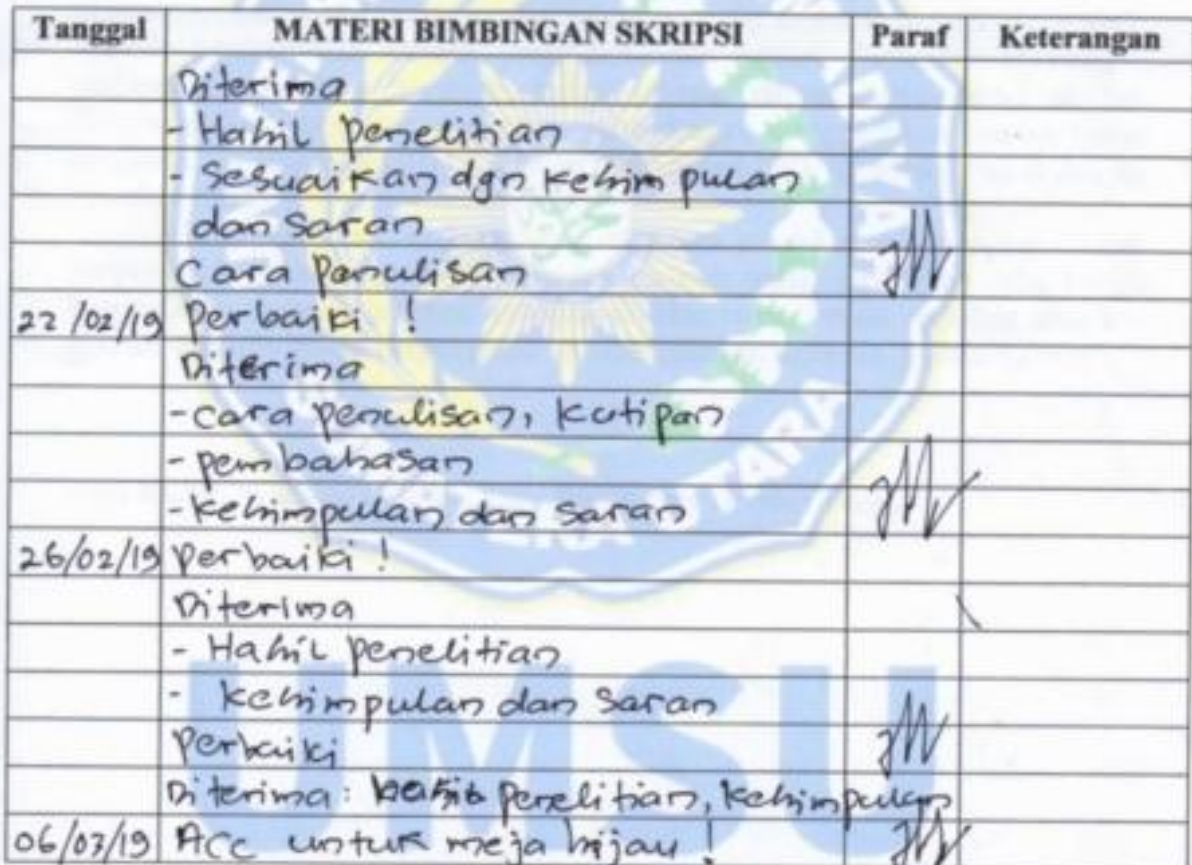 Tanggal MATERI BIMBINGAN SKRIPSI Paraf Keterangan
Diterima
- Hasil penelitian
- Sesuaikan dgn kesimpulan
dan saran
Cara penulisan
22/02/19 Perbaiki !
Diterima
- cara penulisan, kutipan
- pembahasan
- kesimpulan dan saran
26/02/19 perbaiki !
Diterima
- Hasil penelitian
- kesimpulan dan saran
Perbaiki
Diterima: hasil penelitian, kesimpulan
06/03/19 Acc untuk meja hijau !
SUMATERA UTARA
UMSU